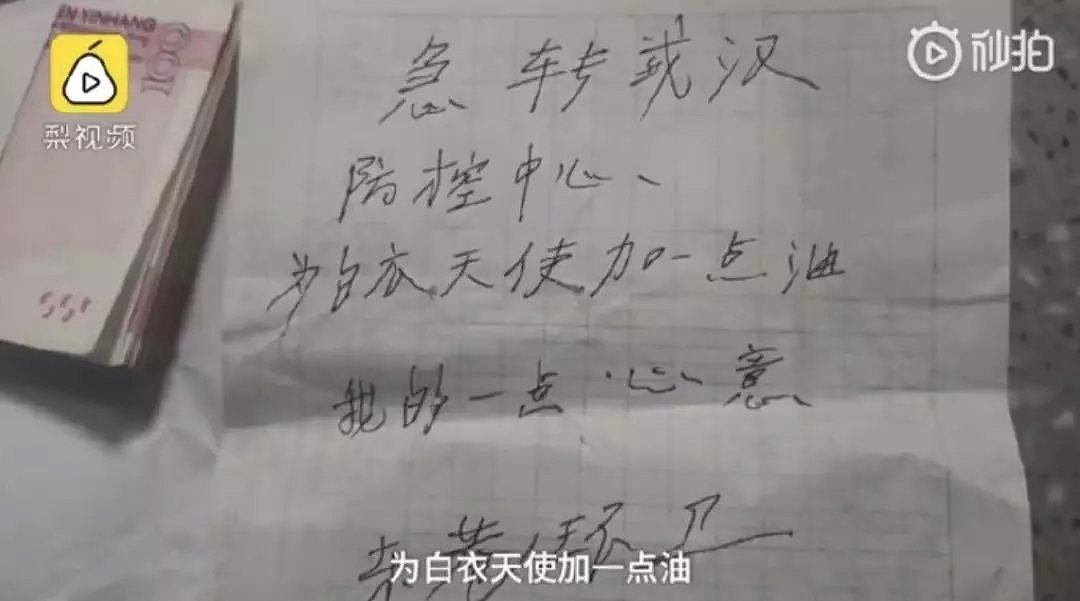 梨视频
秒拍
急转武汉
防控中心、
为白衣天使加一点油
我的一点心意
环卫
为白衣天使加一点油